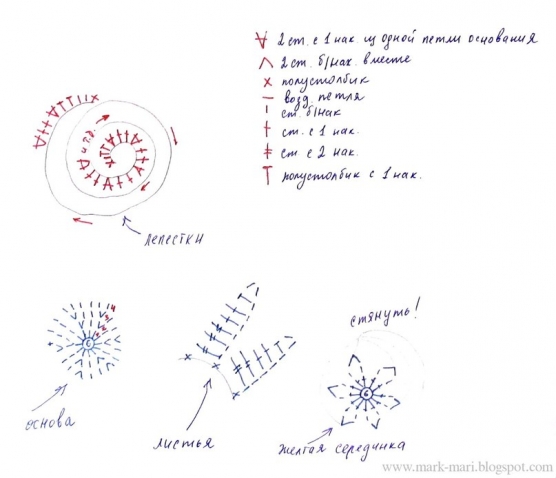 2 ст. с 1 нак. из одной петли основания
2 ст. б/нак. вместе
полустолбик
возд. петля
ст. б/нак
ст. с 1 нак.
ст. с 2 нак.
полустолбик с 1 нак.
и т.д.
лепестки
4
3
2
6
основа
листья
стянуть!
6
желтая серединка
www.mark-mari.blogspot.com